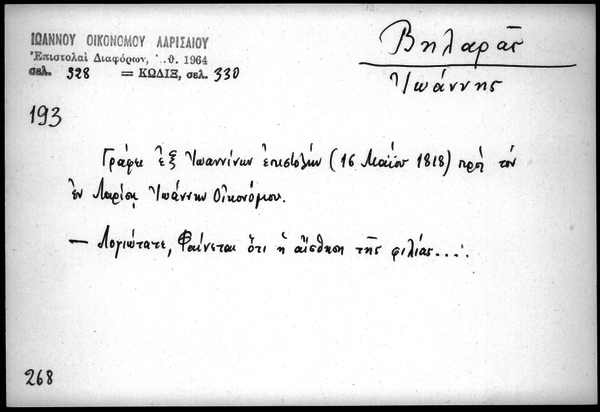 ΙΩΑΝΝΟΥ ΟΙΚΟΝΟΜΟΥ ΛΑΡΙΣΑΙΟΥ
Ἐπιστολαὶ Διαφόρων, θ. 1964
σελ. 328 = ΚΩΔΙΞ, σελ. 330
Βηλαρᾶς
Ἰωάννης
193
Γράφει ἐξ Ἰωαννίνων ἐπιστολὴν (16 Μαΐου 1818) πρὸς τὸν
ἐν Λαρίσῃ Ἰωάννην Οἰκονόμου.
— Λογιώτατε, Φαίνεται ὅτι ἡ αἴσθηση τῆς φιλίας....
268